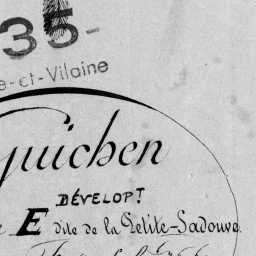 35-
e-et-Vilaine
Guichen
DÉVELOPT
E dite de la Petite-Sadouve.